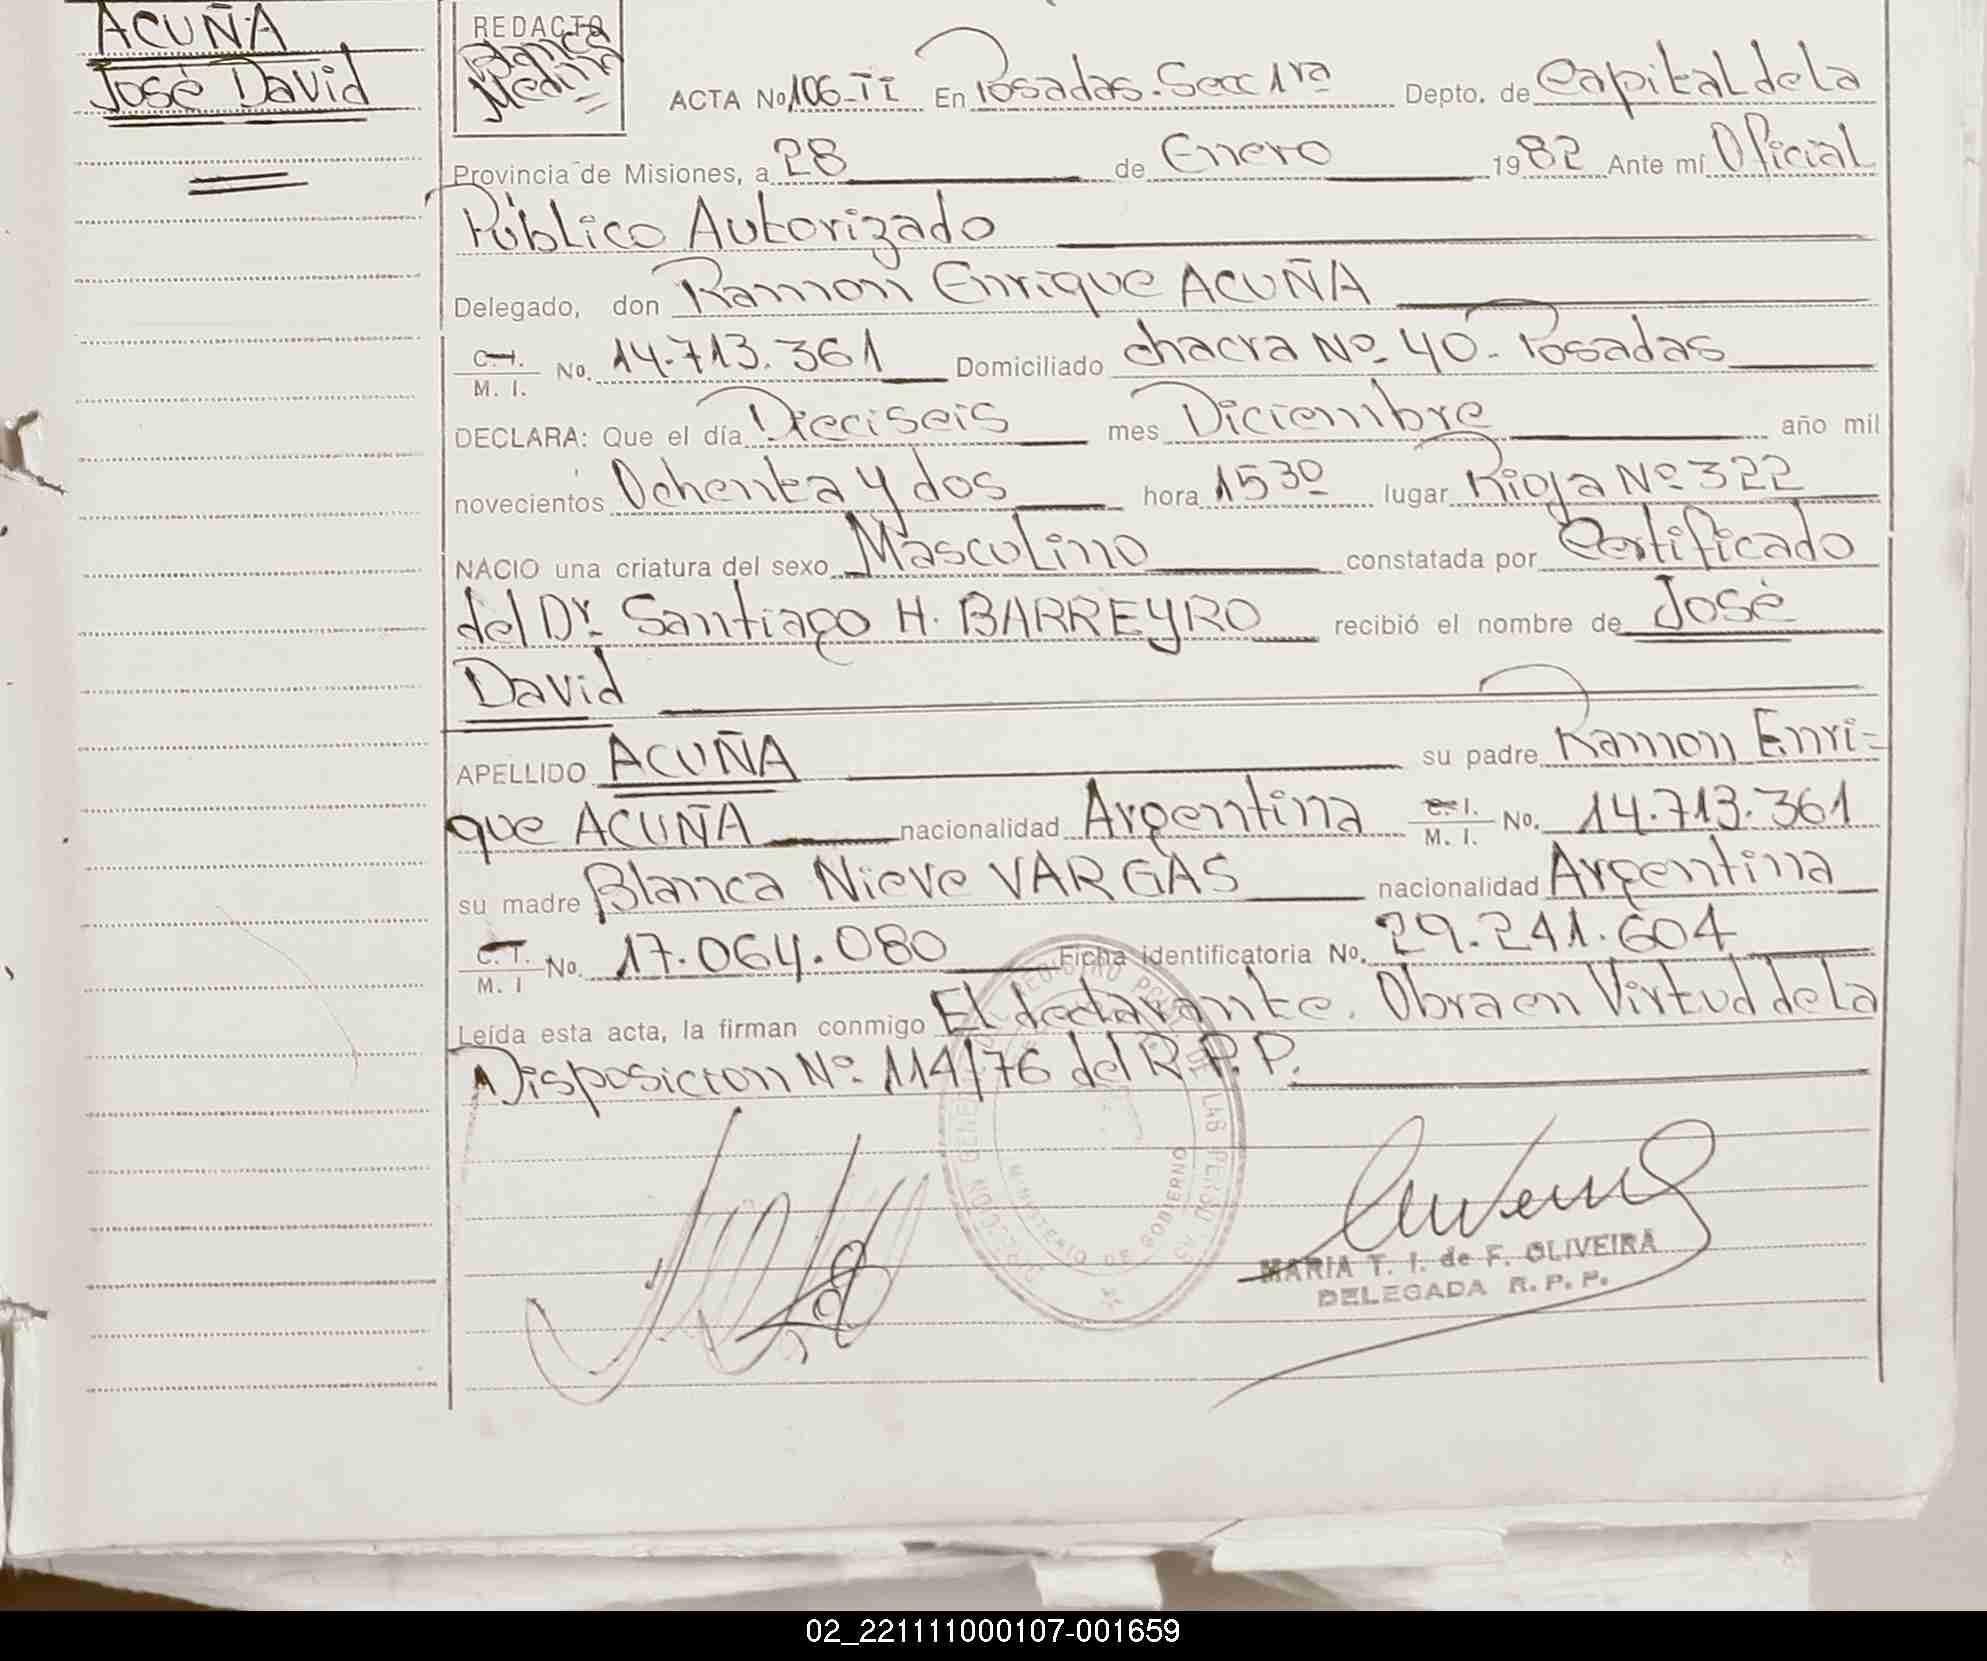 ACUÑA
José David
REDACTO
Blanca
Medina
ACTA No 106-TI En Posadas. Secc 1ra Depto. de Capital de la
Provincia de Misiones, a 28 de Enero 1982 Ante mí Oficial
Público Autorizado
Delegado, don Ramon Enrique ACUÑA
C.I. / M. I. No. 14.713.361 Domiciliado chacra Nº 40. Posadas
DECLARA: Que el día Dieciseis mes Diciembre año mil
novecientos Ochenta y dos hora 1530 lugar Rioja Nº 322
NACIO una criatura del sexo Masculino constatada por Certificado
del Dr. Santiago H. BARREYRO recibió el nombre de José
David
APELLIDO ACUÑA su padre Ramon Enri=
que ACUÑA nacionalidad Argentina C.I. / M. I. No. 14.713.361
su madre Blanca Nieve VARGAS nacionalidad Argentina
C.I. / M. I No. 17.064.080 Ficha identificatoria No. 29.241.604
Leída esta acta, la firman conmigo El declarante. Obra en Virtud de la
Disposicion Nº 114/76 del R.P.P.
MINISTERIO DE GOBIERNO
MARIA T. I. de F. OLIVEIRA
DELEGADA R. P. P.
02_221111000107-001659